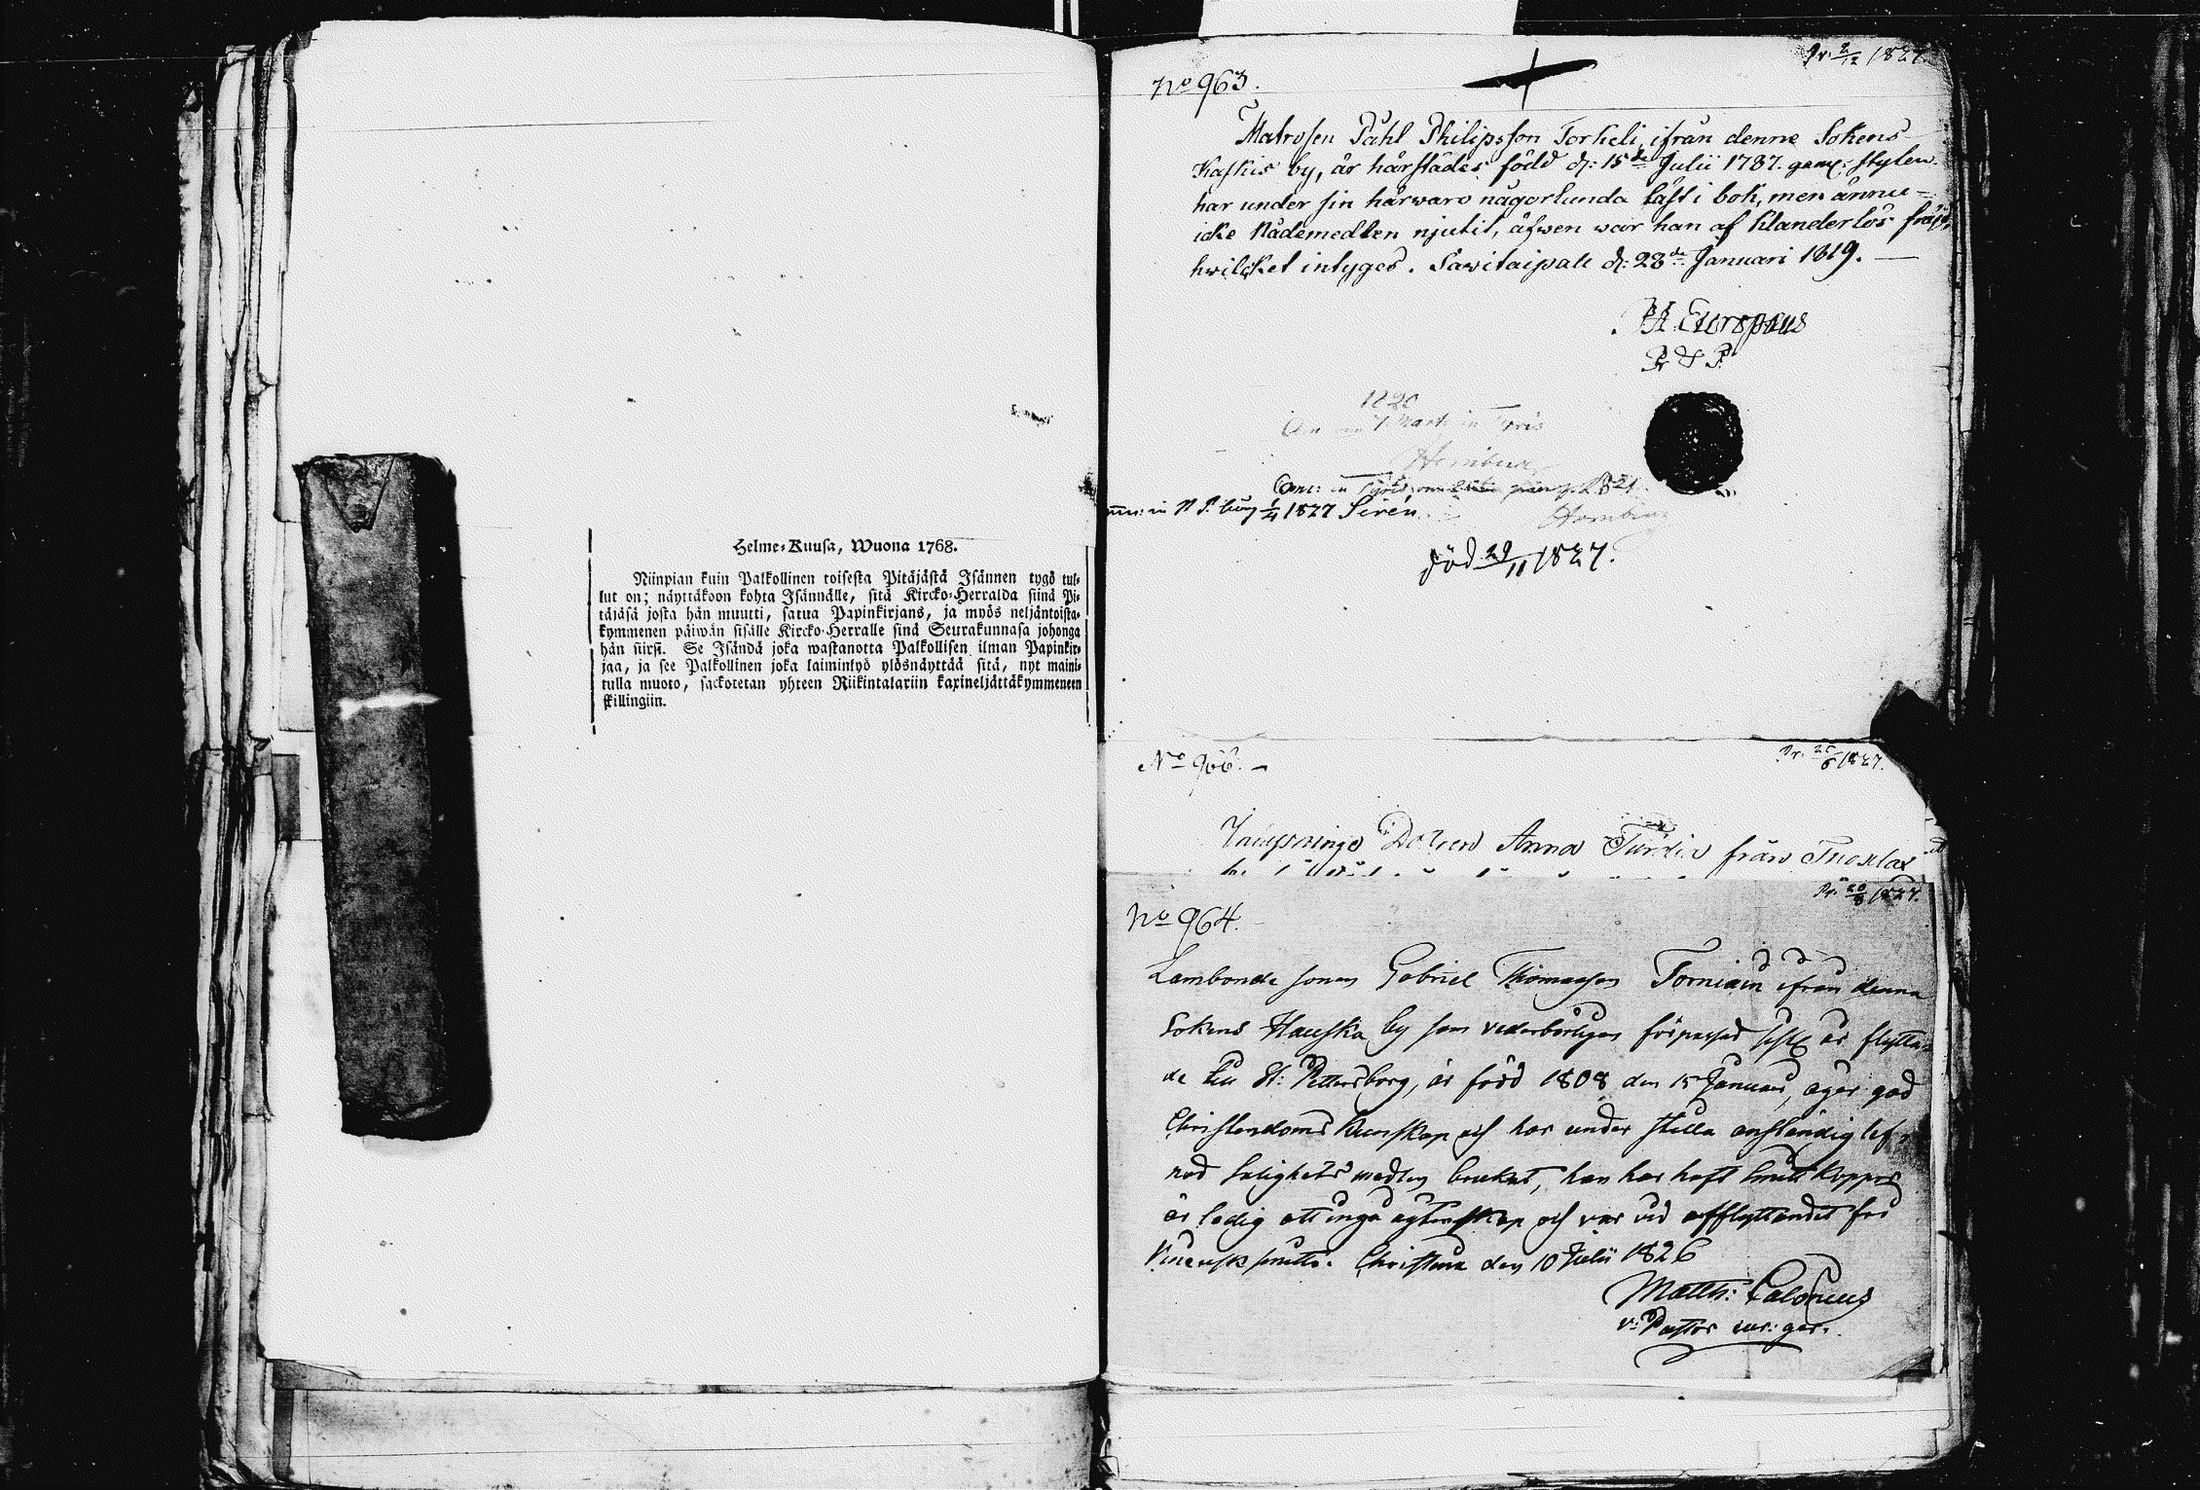 Helme-Kuusa, Wuona 1768.
Niinpian kuin Palkollinen toisesta Pitäjästä Isännen tygö tul-
lut on; näyttäkoon kohta Isännälle, sitä Kircko-Herralda siinä Pi-
täjäsä josta hän muutti, satua Papinkirjans, ja myös neljäntoista-
kymmenen päiwän sisälle Kircko-Herralle sinä Seurakunnasa johonga
hän siirsi. Se Isändä joka wastanotta Palkollisen ilman Papinkir-
jaa, ja see Palkollinen joka laiminlyö ylösnäyttää sitä, nyt maini-
tulla muoto, sackotetan yhteen Riikintalariin kaxineljättäkymmeneen
skillingiin.
Pr. 2/12 1827.
No 963.
Matrosen Påhl Philipsson Torkeli, ifrån denne Sokens
Kaskis by, är härstädes född d: 15de Julii 1787. gaml: stylen.
har under sin härwaro någorlunda läst i bok, men ännu
icke Nådemedlen njutit, äfwen war han af klanderlös fräjd,
hwilcket intygas. Sawitaipale d: 28de Januari 1819.
H. Europæus
P & P
1820
Com: in 1821.
in St P:burg 1/4 1827 Sirén.
död 29/11 1827.
No 966.
Pr. 25/6 1827.
Anna från
Pr. 20/8 1827.
No 964.
Lambonde sonen Gabriel Thomasson Torniain ifrån denna
Sokens Hauska by som vederbörligen förpassad sistl. år flytta-
de till St: Pettersborg, är född 1808 den 15 Januari, äger god
Christendoms Kunskap och har under stilla anständig lef-
nad Salighets medlen brukat, han har haft Smitt Koppor
är ledig att ingå ägtenskap och var vid afflyttandet fri
Venerisk smitta. Christina den 10 Julii 1826
Matth: Calonius
v: Pastor